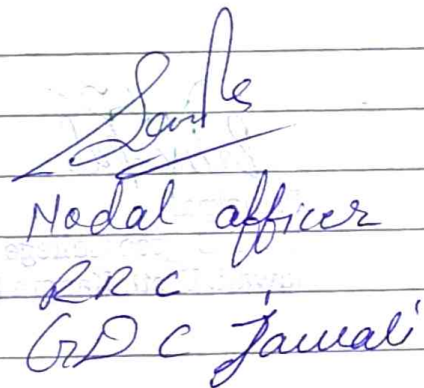 Nodal officer
RRC
GDC Jawali